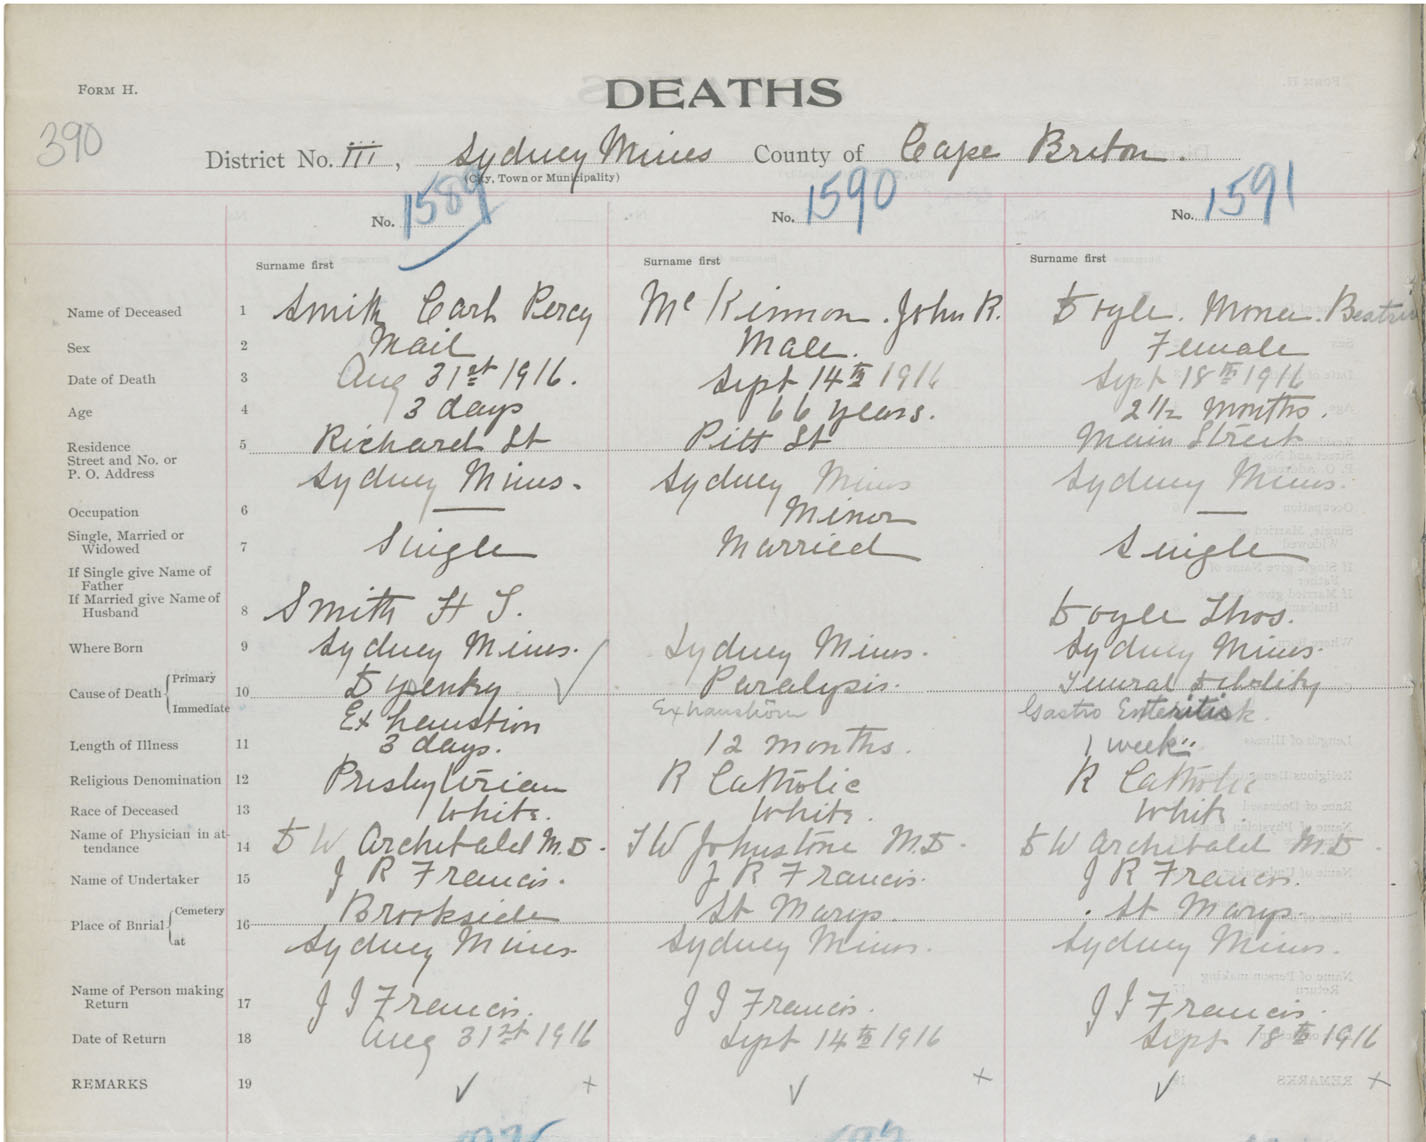 FORM H.
DEATHS
390
District No. III, Sydney Mines County of Cape Breton.
(City, Town or Municipality)
No. 1589 No. 1590 No. 1591
Surname first Surname first Surname first
Name of Deceased 1 Smith Carl Percy McKinnon. John R. Doyle. Mona. Beatric
Sex 2 Mail Male. Female
Date of Death 3 Aug 31st 1916. Sept 14th 1916 Sept 18th 1916
Age 4 3 days 66 years. 2 1/2 months.
Residence 5 Richard St Pitt St Main Street
Street and No. or
P. O. Address Sydney Mines. Sydney Mines Sydney Mines.
Occupation 6 — Minor —
Single, Married or
Widowed 7 Single Married Single
If Single give Name of
Father
If Married give Name of
Husband 8 Smith H S. Doyle Thos.
Where Born 9 Sydney Mines. Sydney Mines. Sydney Mines.
Cause of Death Primary 10 Dypentry Paralysis. General Debility
Immediate Exhaustion Exhaustion Gastro Enteritis
Length of Illness 11 3 days. 12 months. 1 week
Religious Denomination 12 Presbyterian R Catholic R Catholic
Race of Deceased 13 White. White. White.
Name of Physician in at-
tendance 14 D W Archibald M.D. T W Johnstone M.D. D W Archibald M.D.
Name of Undertaker 15 J R Francis. J R Francis. J R Francis.
Place of Bnrial Cemetery 16 Brookside St Marys. St Marys.
at Sydney Mines Sydney Mines. Sydney Mines.
Name of Person making
Return 17 J J Francis. J J Francis. J J Francis.
Date of Return 18 Aug 31st 1916 Sept 14th 1916 Sept 18th 1916
REMARKS 19 ✓ + ✓ + ✓ +